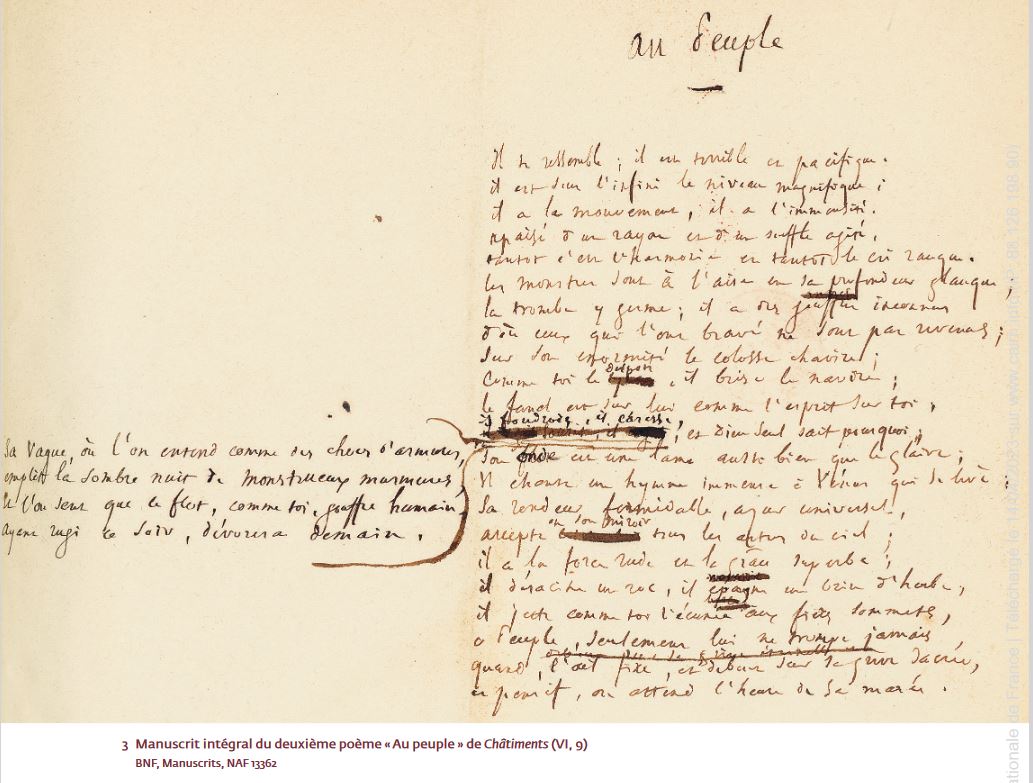 au Peuple
il te ressemble ; il est terrible et pacifique.
il est sous l'infini le niveau magnifique ;
il a le mouvement, il a l'immensité.
apaisé d'un rayon et d'un souffle agité,
tantôt c'est l'harmonie et tantôt le cri rauque.
les monstres sont à l'aise en sa profondeur glauque ;
la trombe y germe ; il a des gouffres inconnus
d'où ceux qui l'ont bravé ne sont pas revenus ;
sur son énormité le colosse chavire ;
comme toi le despote, il brise le navire ;
le fanal est sur lui comme l'esprit sur toi ;
il foudroie, il caresse, et Dieu seul sait pourquoi ;
Sa vague, où l'on entend comme des chocs d'armures,
emplit la sombre nuit de monstrueux murmures,
et l'on sent que ce flot, comme toi, gouffre humain,
ayant rugi ce soir, dévorera demain.
Son onde est une lame aussi bien que le glaive ;
Il chante un hymne immense à Vénus qui se lève ;
Sa rondeur formidable, azur universel,
accepte en son miroir tous les astres du ciel ;
il a la force rude et la grâce superbe ;
il déracine un roc, il épargne un brin d'herbe,
il jette comme toi l'écume aux fiers sommets,
o Peuple, seulement lui ne trompe jamais
quand, l'œil fixe, et debout sur sa grève sacrée,
et pensif, on attend l'heure de sa marée.
3 Manuscrit intégral du deuxième poème « Au peuple » de Châtiments (VI, 9)
BNF, Manuscrits, NAF 13362
ationale de France | Téléchargé le 14/02/2023 sur www.cairn.info (IP: 88.126.198.80)